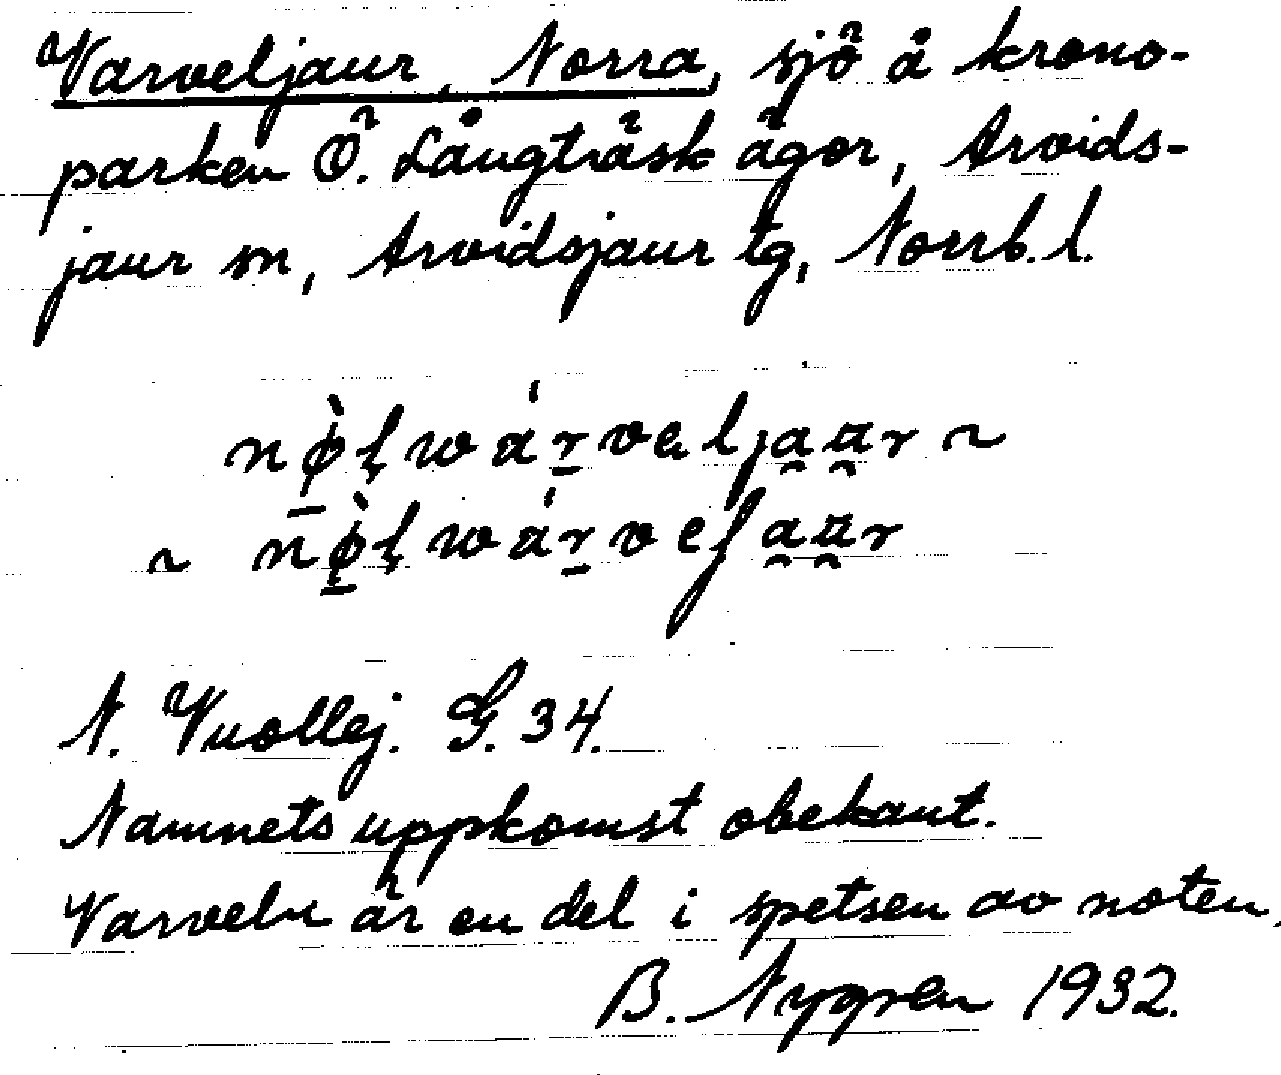 Varveljaur, Norra, sjö å krono-
parken Ö. Långträsk ägor, Arvids-
jaur sn, Arvidsjaur tg, Norrb. l.
~
~
N. Vuollej. G. 34.
Namnets uppkomst obekant.
Varveln är en del i spetsen av noten.
B. Nygren 1932.